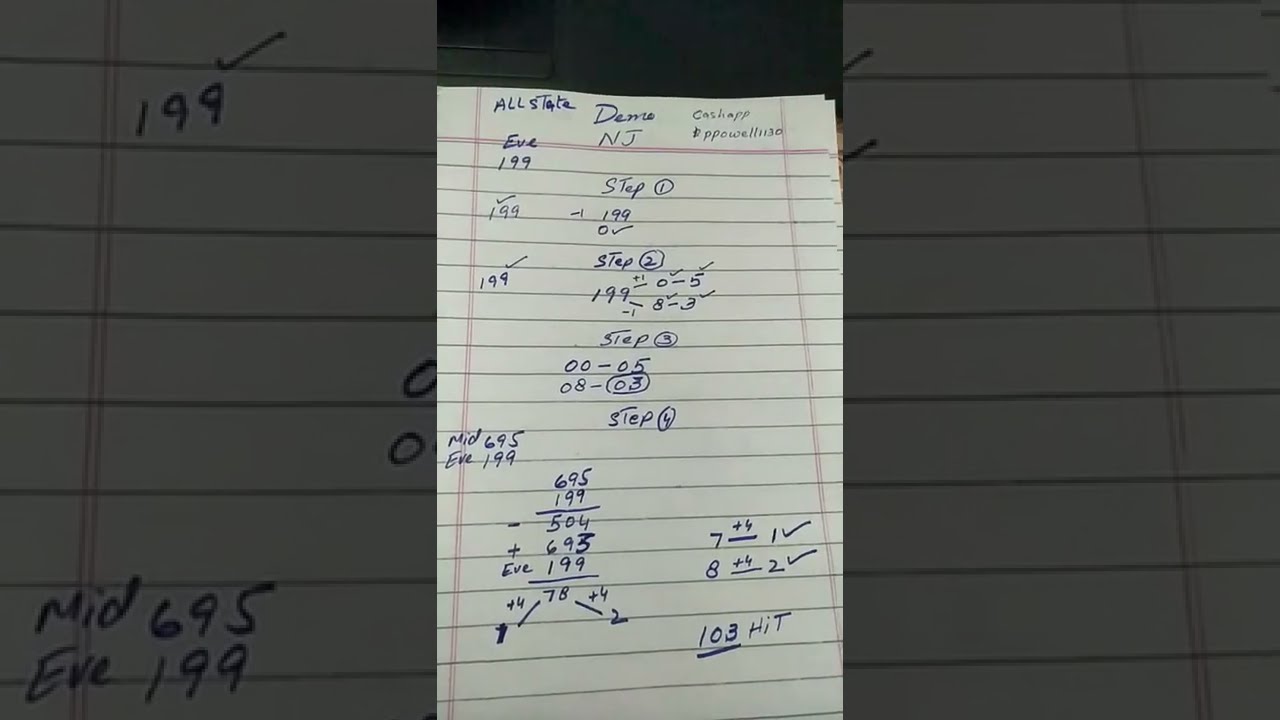 ALL STate Demo Cashapp
Eve NJ $ppowell1130
199
STep ①
199 ✓ -1 199
0✓
STep ②
199 ✓ 199 +1 0✓-5✓
-1 8✓-3✓
STep ③
00-05
08-03
STep ④
Mid 695
Eve 199
695
199
- 504
+ 695
Eve 199
78
+4 +4
1 2
7 +4 1✓
8 +4 2✓
103 HiT
199 ✓
Mid 695
Eve 199